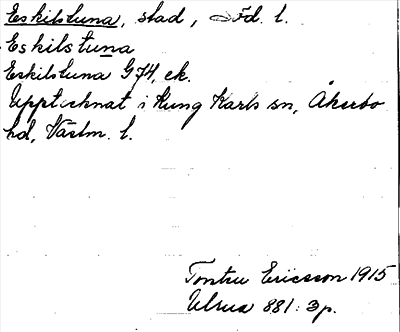 Eskilstuna, stad, Söd. l.
Eskilstuna
Eskilstuna G74, ek.
Upptecknat i Kung Karls sn, Åkerbo
hd, Västm. l.
Torsten Ericsson 1915
Ulrus 881: 3 p.